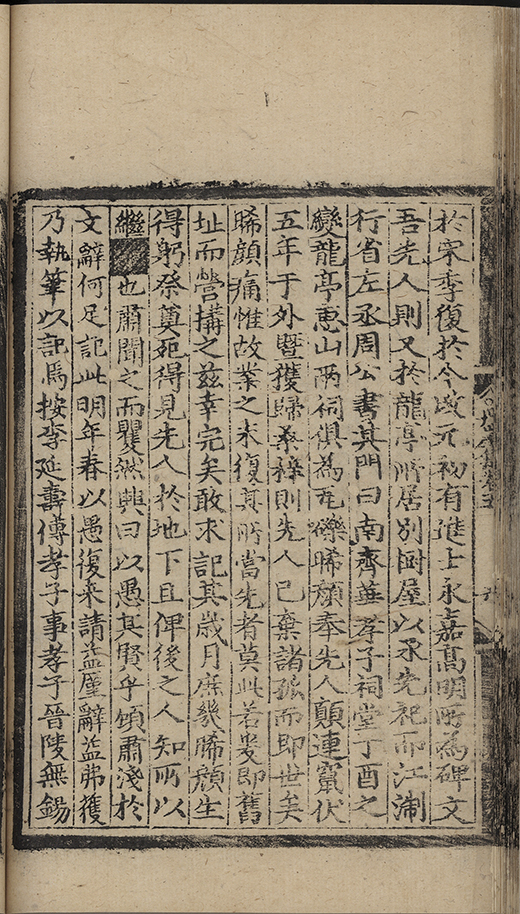 於宋季復於今改元初有進士永嘉髙明所為碑文
吾先人則又於龍亭所居別剏屋以承先祀而江淛
行省左丞周公書其門曰南齊華孝子祠堂丁酉之
變龍亭惠山兩祠俱為瓦礫晞顔奉先人顛連竄伏
五年于外暨獲歸桑梓則先人已棄諸孤而即世矣
晞顔痛惟故業之未復其所當先者莫此若爰即舊
址而營搆之兹幸完矣敢求記其歳月庶幾晞顔生
得躬祭奠死得見先人於地下且俾後之人知所以
繼也肅聞之而矍然興曰以愚其賢乎顧肅淺於
文辭何足記此明年春以愚復来請益堅辭益弗獲
乃執筆以記焉按李延壽傳孝子事孝子晉陵無錫